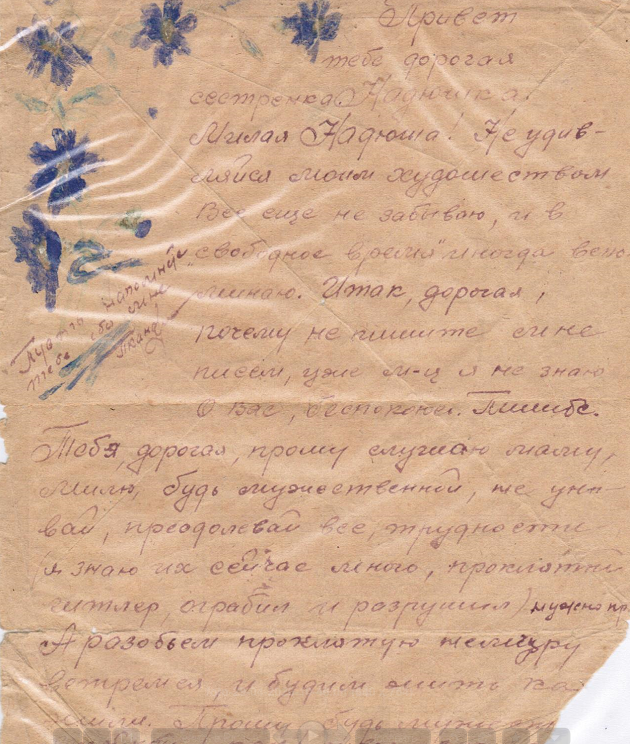 Привет
тебе дорогая
сестренка Надюшка!
Милая Надюша! Не удив-
ляйся моим художеством
Все еще не забываю, и в
"свободное время" иногда вспо-
минаю. Итак, дорогая,
почему не пишите мне
писем, уже м-ц я не знаю
О Вас, беспокоюсь. Пишите.
Тебя, дорогая, прошу слушай маму,
Милю, будь мужественной, не уны-
вай, преодолевай все, трудности
(я знаю их сейчас много, проклятый
гитлер, ограбил и разрушил) нужно
А разобьем проклятую немчуру
встремся, и будим жить ка
жили. Прошу будь
Пусть напоминают
тебе обо мне